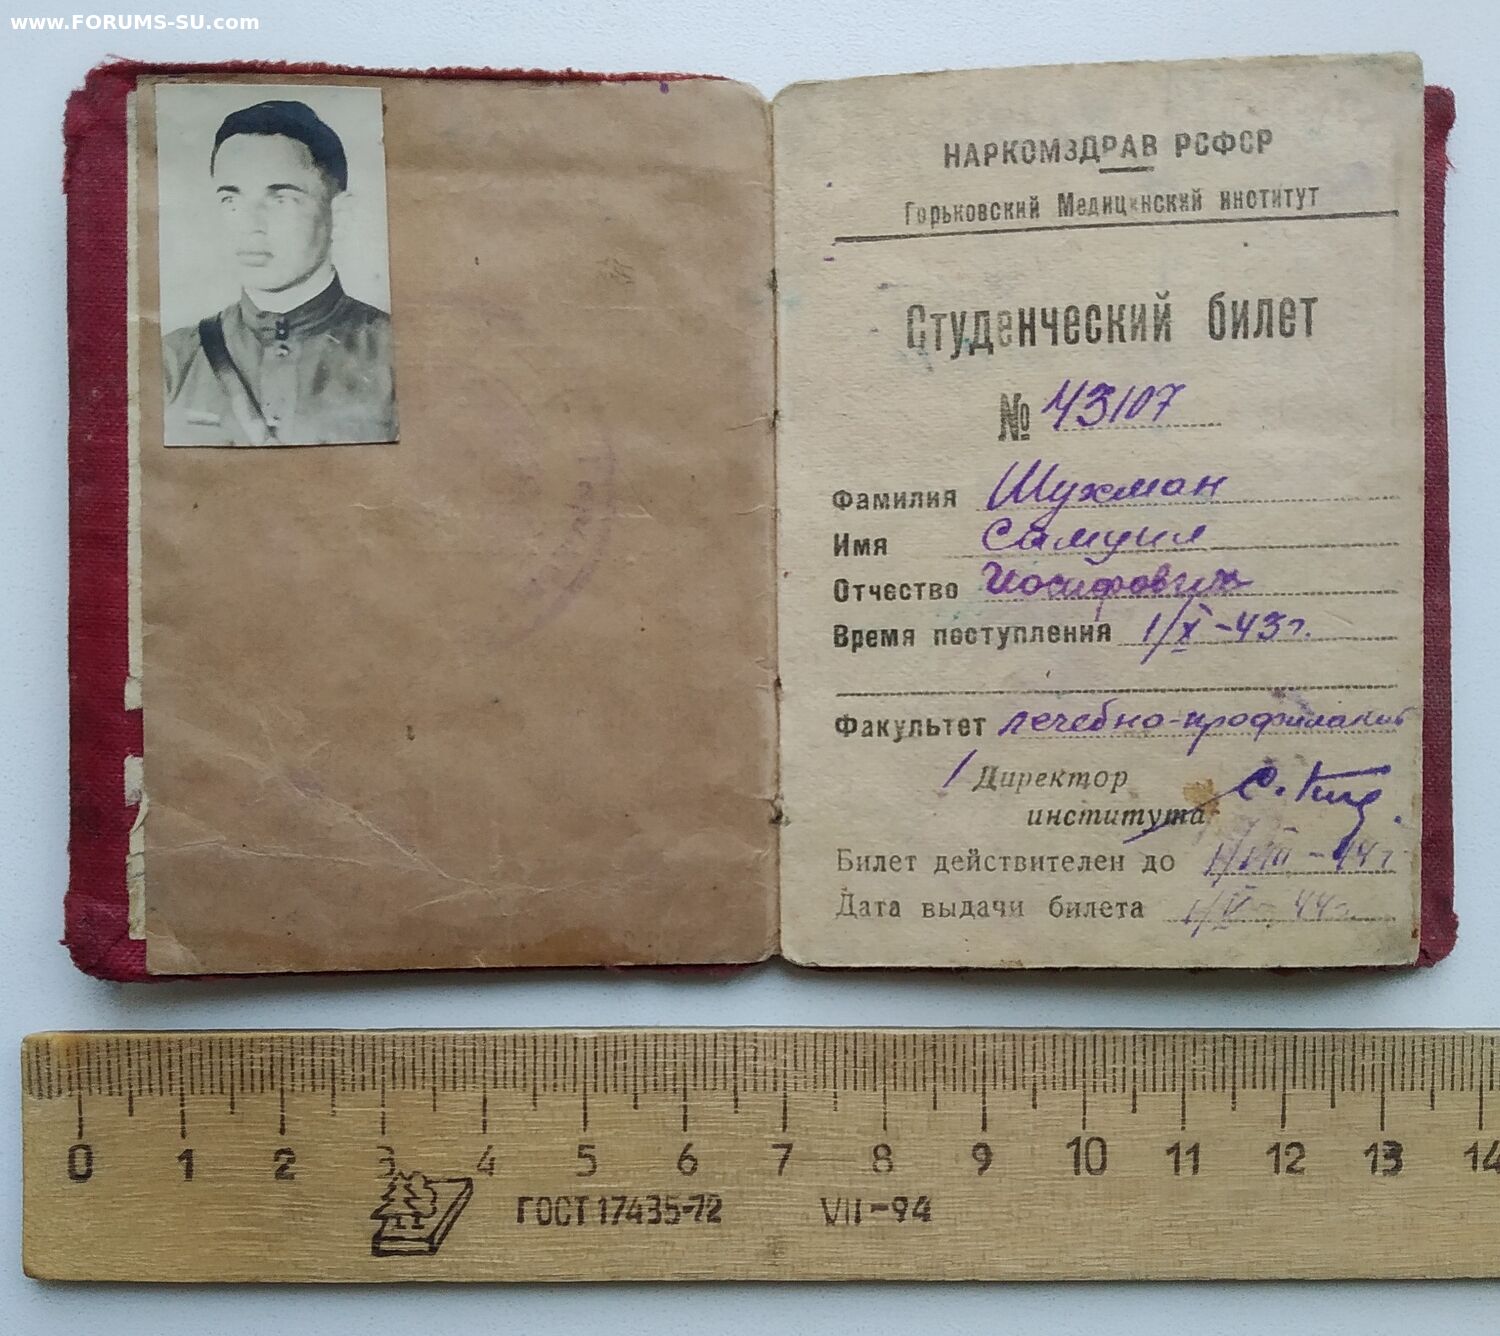 www.FORUMS-SU.com
НАРКОМЗДРАВ РСФСР
Горьковский Медицинский институт
Студенческий билет
№ 43107
Фамилия Шухман
Имя Самуил
Отчество Иосифович
Время поступления 1/X-43г.
Факультет лечебно-профилакт
Директор
института
Билет действителен до 1/VIII-44г
Дата выдачи билета 44г.
0 1 2 3 4 5 6 7 8 9 10 11 12 13 14
ГОСТ 17435-72 VII-94